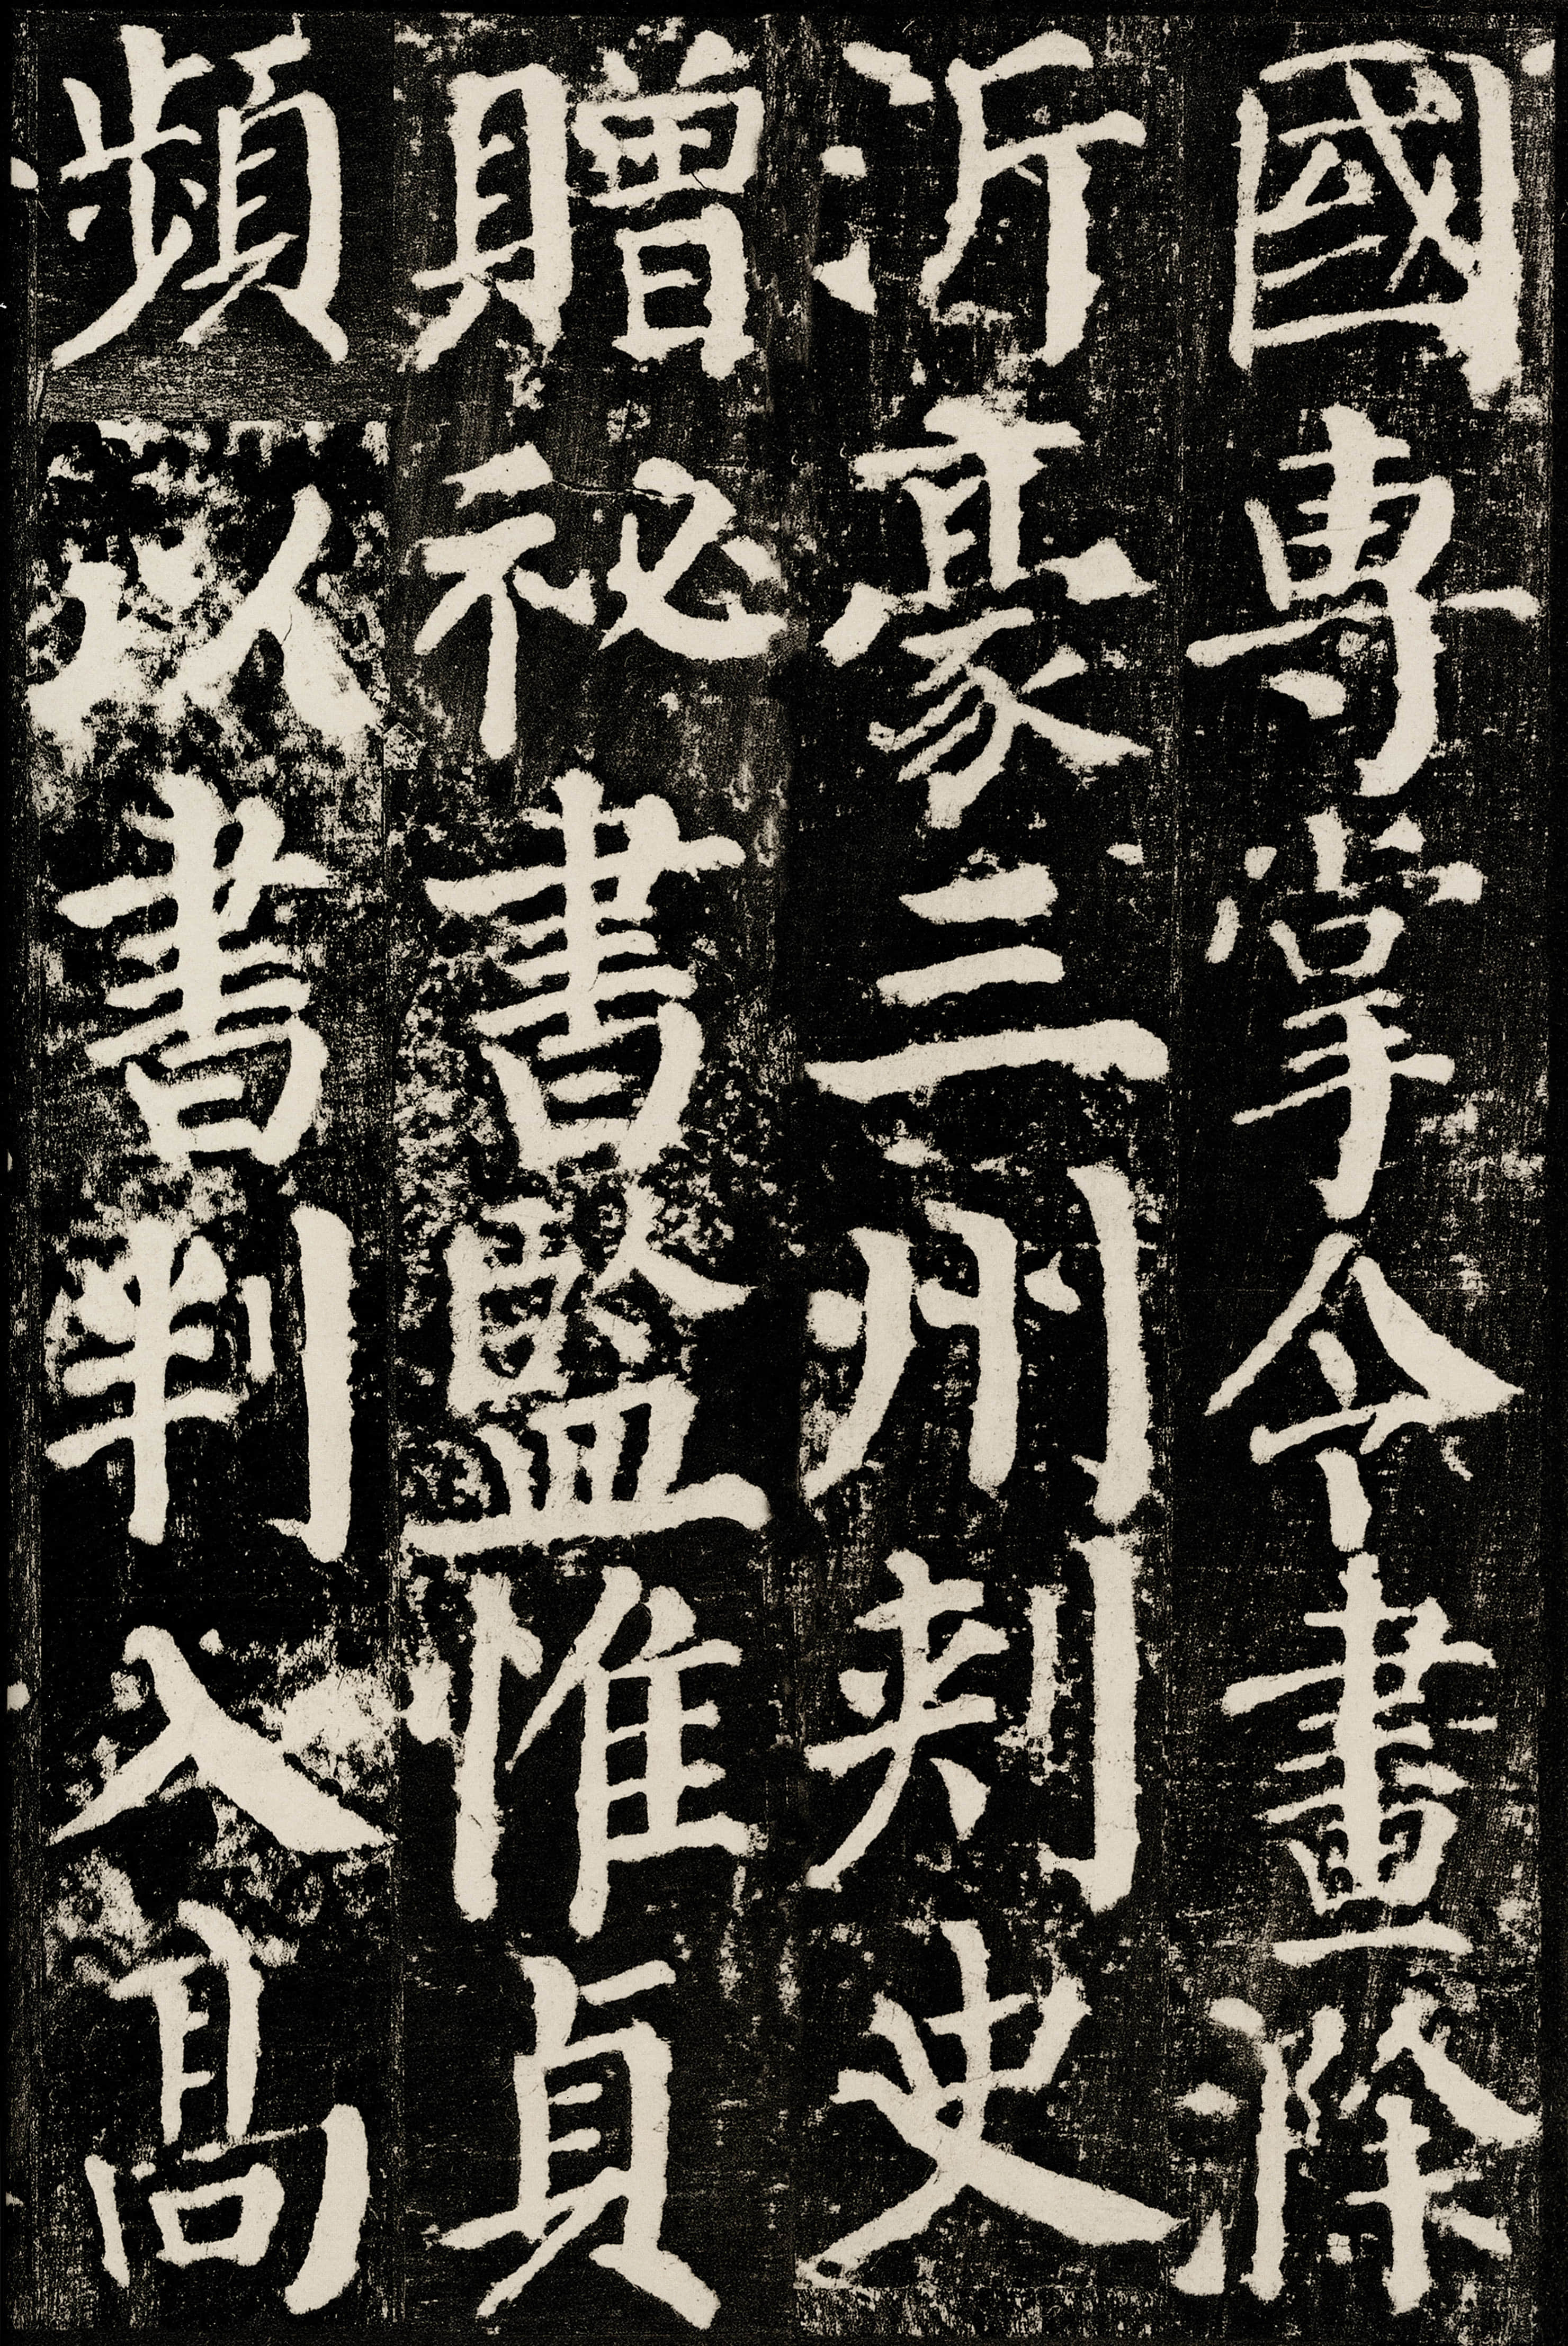 國專掌令畫滁
沂豪三州刺史
贈祕書監惟貞
頻以書判入高